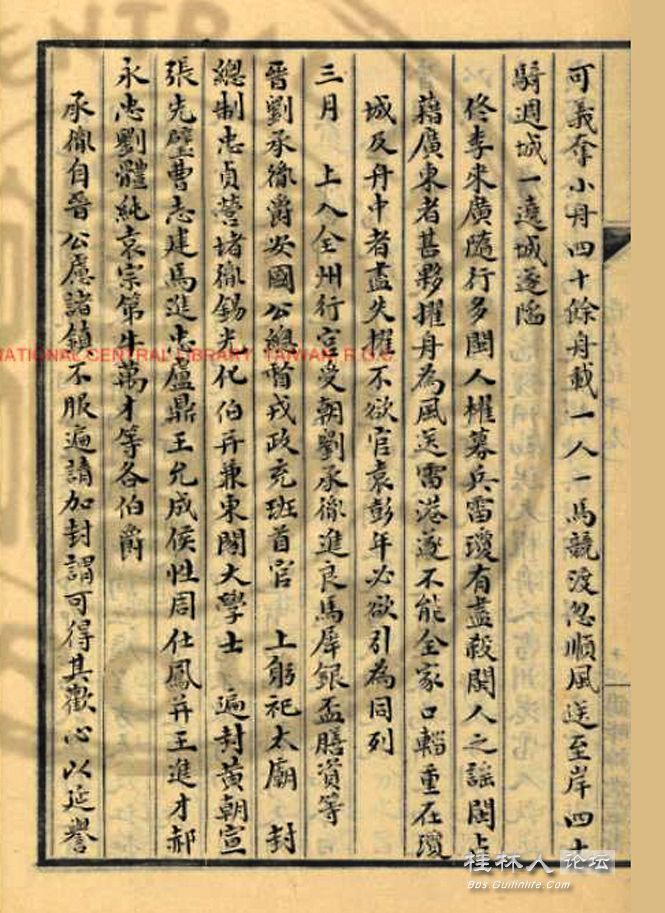 可義夺小舟四十餘舟載一人一馬競渡忽順風送至岸四十
騎週城一遶城遂陷
佟李來廣隨行多閩人櫂募兵雷瓊有盡殺閩人之謡閩占
藉廣東者甚夥櫂舟為風送雷港遂不能全家口輜重在瓊
城及舟中者盡失櫂不欲官袁彭年必欲引為同列
三月 上入全州行宮受朝劉承㣧進良馬犀銀盃膳資等
晉劉承㣧爵安國公總督戎政充班首官 上躬祀太廟 封
總制忠貞營堵㣧錫光化伯并兼東閣大學士 遍封黃朝宣
張先璧曹志建馬進忠盧鼎王允成侯性周仕鳳并王進才郝
永忠劉體純袁宗第牛萬才等各伯爵
承㣧自晉公慮諸鎮不服遍請加封謂可得其歡心以延譽
NATIONAL CENTRAL LIBRARY, TAIWAN R.O.C.
桂林人论坛
Bbs.Guilinlife.Com